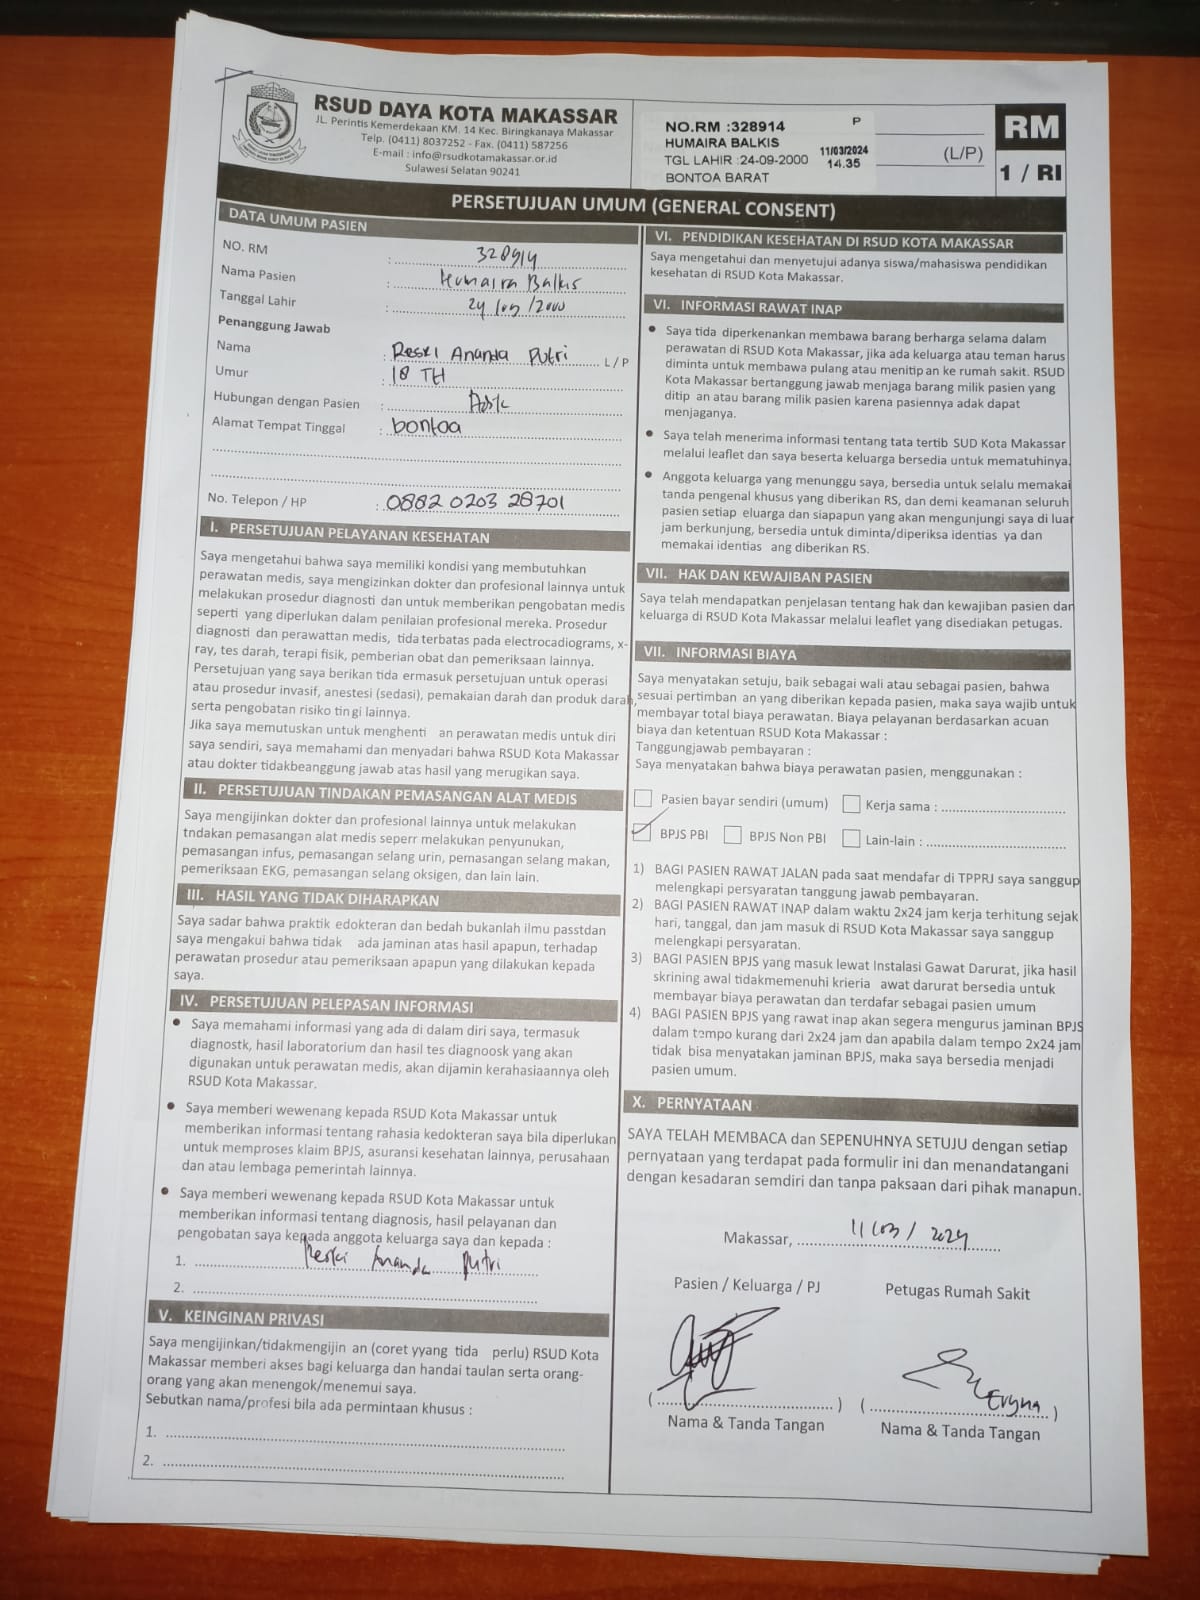 RSUD DAYA KOTA MAKASSAR
JL. Perintis Kemerdekaan KM. 14 Kec. Biringkanaya Makassar
Telp. (0411) 8037252 - Fax. (0411) 587256
E-mail : info@rsudkotamakassar.or.id
Sulawesi Selatan 90241
NO.RM :328914 P
HUMAIRA BALKIS
TGL LAHIR :24-09-2000 11/03/2024
14.35
BONTOA BARAT
(L/P)
RM
1 / RI
PERSETUJUAN UMUM (GENERAL CONSENT)
DATA UMUM PASIEN
NO. RM : 328914
Nama Pasien : Humaira Balkis
Tanggal Lahir : 24 / 09 / 2000
Penanggung Jawab
Nama : Reski Ananda Putri L / P
Umur : 18 TH
Hubungan dengan Pasien : Adik
Alamat Tempat Tinggal : bontoa
No. Telepon / HP : 0882 0203 28701
I. PERSETUJUAN PELAYANAN KESEHATAN
Saya mengetahui bahwa saya memiliki kondisi yang membutuhkan
perawatan medis, saya mengizinkan dokter dan profesional lainnya untuk
melakukan prosedur diagnosti dan untuk memberikan pengobatan medis
seperti yang diperlukan dalam penilaian profesional mereka. Prosedur
diagnosti dan perawattan medis, tida terbatas pada electrocadiograms, x-
ray, tes darah, terapi fisik, pemberian obat dan pemeriksaan lainnya.
Persetujuan yang saya berikan tida ermasuk persetujuan untuk operasi
atau prosedur invasif, anestesi (sedasi), pemakaian darah dan produk darah,
serta pengobatan risiko tin gi lainnya.
Jika saya memutuskan untuk menghenti an perawatan medis untuk diri
saya sendiri, saya memahami dan menyadari bahwa RSUD Kota Makassar
atau dokter tidakbeanggung jawab atas hasil yang merugikan saya.
II. PERSETUJUAN TINDAKAN PEMASANGAN ALAT MEDIS
Saya mengijinkan dokter dan profesional lainnya untuk melakukan
tndakan pemasangan alat medis seperr melakukan penyunukan,
pemasangan infus, pemasangan selang urin, pemasangan selang makan,
pemeriksaan EKG, pemasangan selang oksigen, dan lain lain.
III. HASIL YANG TIDAK DIHARAPKAN
Saya sadar bahwa praktik edokteran dan bedah bukanlah ilmu passtdan
saya mengakui bahwa tidak ada jaminan atas hasil apapun, terhadap
perawatan prosedur atau pemeriksaan apapun yang dilakukan kepada
saya.
IV. PERSETUJUAN PELEPASAN INFORMASI
• Saya memahami informasi yang ada di dalam diri saya, termasuk
diagnostk, hasil laboratorium dan hasil tes diagnoosk yang akan
digunakan untuk perawatan medis, akan dijamin kerahasiaannya oleh
RSUD Kota Makassar.
• Saya memberi wewenang kepada RSUD Kota Makassar untuk
memberikan informasi tentang rahasia kedokteran saya bila diperlukan
untuk memproses klaim BPJS, asuransi kesehatan lainnya, perusahaan
dan atau lembaga pemerintah lainnya.
• Saya memberi wewenang kepada RSUD Kota Makassar untuk
memberikan informasi tentang diagnosis, hasil pelayanan dan
pengobatan saya kepada anggota keluarga saya dan kepada :
1. Reski Ananda Putri
2.
V. KEINGINAN PRIVASI
Saya mengijinkan/tidakmengijin an (coret yyang tida perlu) RSUD Kota
Makassar memberi akses bagi keluarga dan handai taulan serta orang-
orang yang akan menengok/menemui saya.
Sebutkan nama/profesi bila ada permintaan khusus :
1.
2.
VI. PENDIDIKAN KESEHATAN DI RSUD KOTA MAKASSAR
Saya mengetahui dan menyetujui adanya siswa/mahasiswa pendidikan
kesehatan di RSUD Kota Makassar.
VI. INFORMASI RAWAT INAP
• Saya tida diperkenankan membawa barang berharga selama dalam
perawatan di RSUD Kota Makassar, jika ada keluarga atau teman harus
diminta untuk membawa pulang atau menitip an ke rumah sakit. RSUD
Kota Makassar bertanggung jawab menjaga barang milik pasien yang
ditip an atau barang milik pasien karena pasiennya adak dapat
menjaganya.
• Saya telah menerima informasi tentang tata tertib SUD Kota Makassar
melalui leaflet dan saya beserta keluarga bersedia untuk mematuhinya.
• Anggota keluarga yang menunggu saya, bersedia untuk selalu memakai
tanda pengenal khusus yang diberikan RS, dan demi keamanan seluruh
pasien setiap eluarga dan siapapun yang akan mengunjungi saya di luar
jam berkunjung, bersedia untuk diminta/diperiksa identias ya dan
memakai identias ang diberikan RS.
VII. HAK DAN KEWAJIBAN PASIEN
Saya telah mendapatkan penjelasan tentang hak dan kewajiban pasien dan
keluarga di RSUD Kota Makassar melalui leaflet yang disediakan petugas.
VII. INFORMASI BIAYA
Saya menyatakan setuju, baik sebagai wali atau sebagai pasien, bahwa
sesuai pertimban an yang diberikan kepada pasien, maka saya wajib untuk
membayar total biaya perawatan. Biaya pelayanan berdasarkan acuan
biaya dan ketentuan RSUD Kota Makassar :
Tanggungjawab pembayaran :
Saya menyatakan bahwa biaya perawatan pasien, menggunakan :
Pasien bayar sendiri (umum) Kerja sama :
BPJS PBI BPJS Non PBI Lain-lain :
1) BAGI PASIEN RAWAT JALAN pada saat mendafar di TPPRJ saya sanggup
melengkapi persyaratan tanggung jawab pembayaran.
2) BAGI PASIEN RAWAT INAP dalam waktu 2x24 jam kerja terhitung sejak
hari, tanggal, dan jam masuk di RSUD Kota Makassar saya sanggup
melengkapi persyaratan.
3) BAGI PASIEN BPJS yang masuk lewat Instalasi Gawat Darurat, jika hasil
skrining awal tidakmemenuhi krieria awat darurat bersedia untuk
membayar biaya perawatan dan terdafar sebagai pasien umum
4) BAGI PASIEN BPJS yang rawat inap akan segera mengurus jaminan BPJS
dalam tempo kurang dari 2x24 jam dan apabila dalam tempo 2x24 jam
tidak bisa menyatakan jaminan BPJS, maka saya bersedia menjadi
pasien umum.
X. PERNYATAAN
SAYA TELAH MEMBACA dan SEPENUHNYA SETUJU dengan setiap
pernyataan yang terdapat pada formulir ini dan menandatangani
dengan kesadaran semdiri dan tanpa paksaan dari pihak manapun.
Makassar, 11 / 03 / 2024
Pasien / Keluarga / PJ Petugas Rumah Sakit
( ) ( Evyna )
Nama & Tanda Tangan Nama & Tanda Tangan